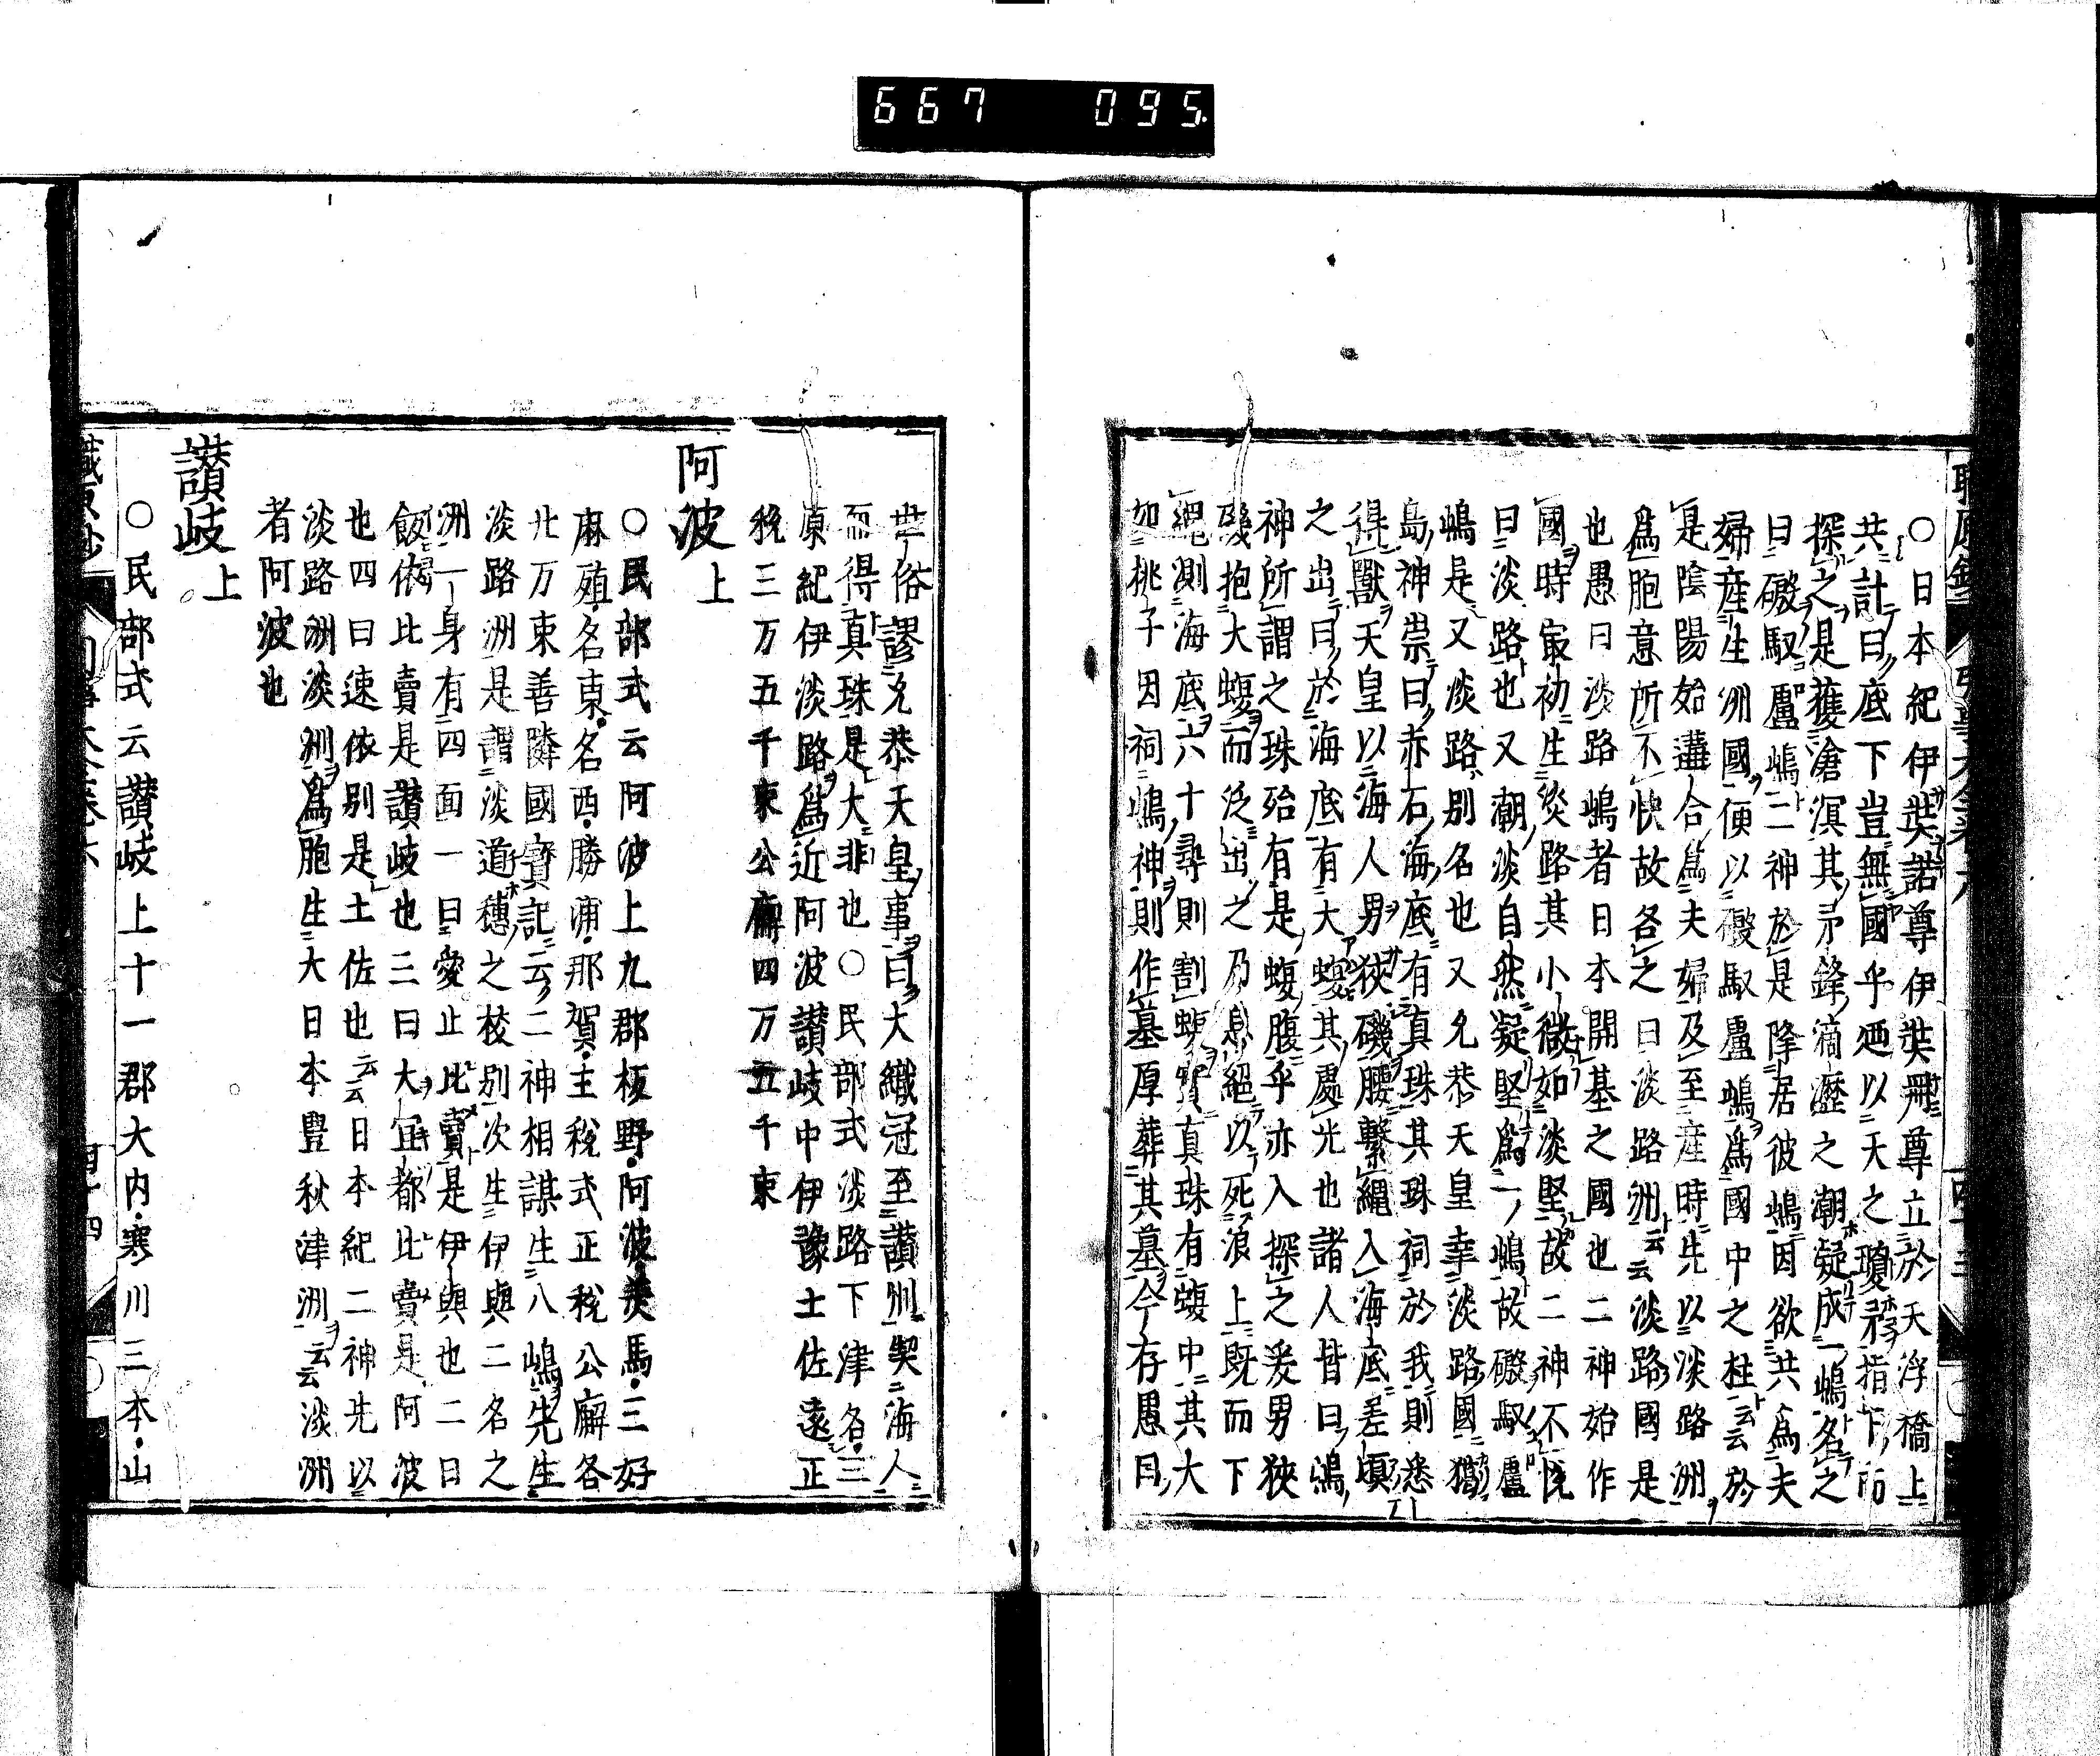 667 095.
○日本紀伊弉諾尊伊弉冊尊立於天浮橋上
共計曰底下豈無國乎廼以天之瓊矛指下而
探之是獲滄溟其矛鋒滴瀝之潮凝成一嶋名之
曰磤馭盧嶋二神於是降居彼嶋因欲共爲夫
婦産生洲國便以磤馭盧嶋爲國中之柱云云於
是陰陽始遘合爲夫婦及至産時先以淡路洲
爲胞意所不快故名之曰淡路洲云云淡路國是
也愚曰淡路嶋者日本開基之國也二神始作
國時㝡初生淡路其小微如淡堅故二神不悅
曰淡路也又潮淡自然凝堅爲一嶋故磤馭盧
嶋是又淡路別名也又允恭天皇幸淡路國獵
島神崇曰赤石海底有真珠其珠祠於我則悉
得獸天皇以海人男狹磯腰繫繩入海底差頃
之出曰於海底有大蝮其處光也諸人皆曰嶋
神所謂之珠殆有是蝮腹乎亦入探之爰男狹
磯抱大蝮而泛出之乃息絕以死浪上既而下
繩測海底六十尋則割蝮實真珠有蝮中其大
如桃子因祠嶋神則作墓厚葬其墓今存愚曰
世俗謬允恭天皇事曰大織冠至讃州契海人
而得真珠是大非也○民部式淡路下津名三
原紀伊淡路爲近阿波讃岐中伊豫土佐遠正
稅三万五千束公廨四万五千束
阿波上
○民部式云阿波上九郡板野阿波美馬三好
麻殖名東名西勝浦那賀主稅式正稅公廨各
廿万束善隣國寳記云二神相謀生八嶋先生
淡路洲是謂淡道穗之狡別次生伊與二名之
洲一身有四面一曰愛止比賣是伊與也二曰
飯依比賣是讃岐也三曰大宜都比賣是阿波
也四曰速依別是土佐也云云日本紀二神先以
淡路洲淡洲爲胞生大日本豊秋津洲云云淡洲
者阿波也
讃岐上
○民部式云讃岐上十一郡大内寒川三本山